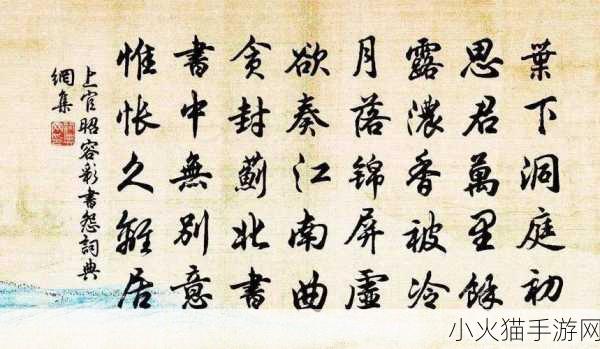 葉下洞庭初
思君萬里餘
露濃香被冷
月落錦屏虛
欲奏江南曲
貪封薊北書
書中無別意
惟悵久離居
上官昭容彩書怨詞典
網集
小火猫手游网